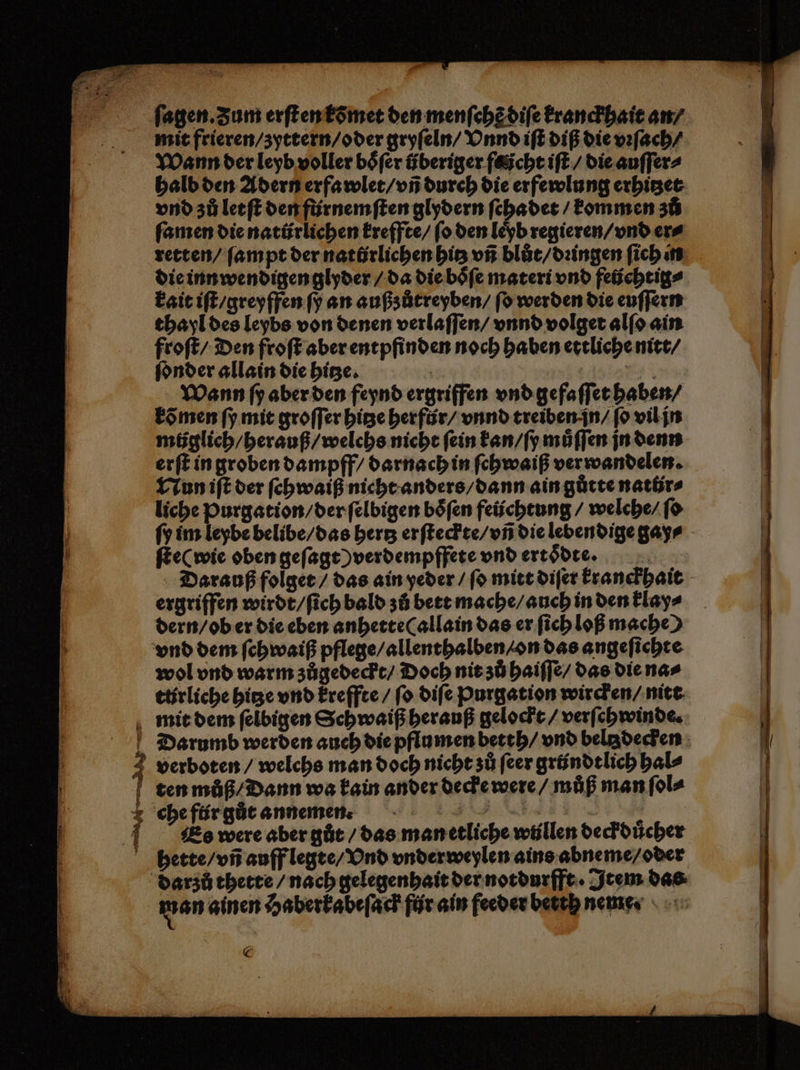 ſagen. Zum erſten kõmet den menſchẽ diſe kranckhait an/
mit frieren/zyttern/oder gryſeln/ Vnnd iſt diß die vꝛſach/
Wann der leyb voller böſer überiger feücht iſt / die auſſer⸗
halb den Adern erfawlet/vñ durch die erfewlung erhitzet
vnd zů letſt den fürnemſten glydern ſchadet / kommen zů
ſamen die natürlichen kreffte/ ſo den leyb regieren/vnd er⸗
retten/ ſampt der natürlichen hitz vñ blůt/dꝛingen ſich in
die innwendigen glyder / da die böſe materi vnd feüchtig⸗
kait iſt/greyffen ſy an außzůtreyben/ ſo werden die euſſern
thayl des leybs von denen verlaſſen/ vnnd volget alſo ain
froſt/ Den froſt aber entpfinden noch haben ettliche nitt/
ſonder allain die hitze.
Wann ſy aber den feynd ergriffen vnd gefaſſet haben/
kõmen ſy mit groſſer hitze herfür/ vnnd treiben jn/ ſo vil jn
müglich/herauß/welchs nicht ſein kan/ſy müſſen jn denn
erſt in groben dampff/ darnach in ſchwaiß verwandelen.
Nun iſt der ſchwaiß nicht anders/dann ain gůtte natür⸗
liche Purgation/der ſelbigen böſen feüchtung / welche/ ſo
ſy im leybe belibe/das hertz erſteckte/vñ die lebendige gay⸗
ſte(wie oben geſagt)verdempffete vnd ertödte.
Darauß folget / das ain yeder / ſo mitt diſer kranckhait
ergriffen wirdt/ſich bald zů bett mache/auch in den klay⸗
dern/ob er die eben anhette(allain das er ſich loß mache)
vnd dem ſchwaiß pflege/allenthalben/on das angeſichte
wol vnd warm zůgedeckt/ Doch nit zů haiſſe/ das die na⸗
türliche hitze vnd kreffte / ſo diſe Purgation wircken/ nitt
mit dem ſelbigen Schwaiß herauß gelockt / verſchwinde.
Darumb werden auch die pflumen betth/ vnd beltzdecken
verboten / welchs man doch nicht zů ſeer gründtlich hal⸗
ten můß/Dann wa kain ander decke were / můß man ſol⸗
che für gůt annemen.
Es were aber gůt / das man etliche wüllen deckdůcher
hette/vñ auff legte/Vnd vnderweylen ains abneme/oder
darzů thette / nach gelegenhait der notdurfft. Item das
man ainen Haberkabeſack für ain feeder betth neme.
C